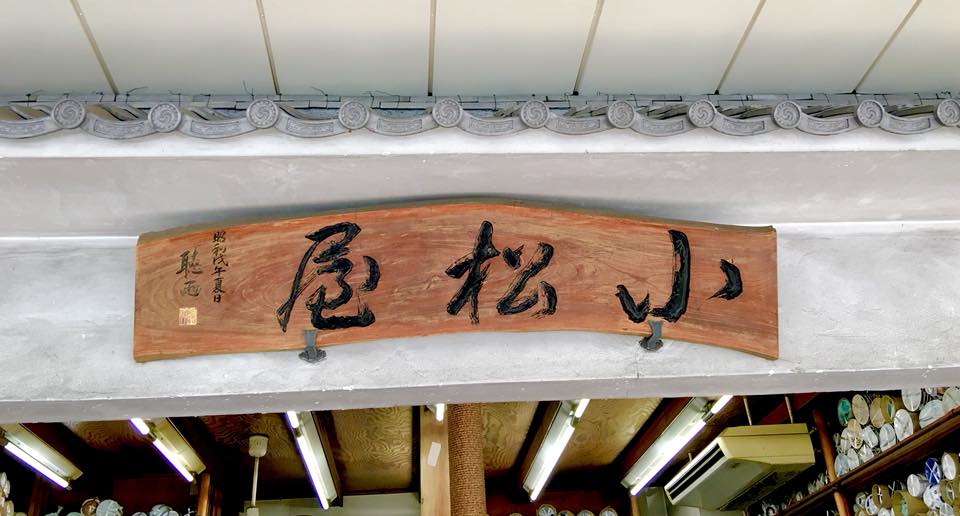 小松屋
昭和戊午夏日
聴雨